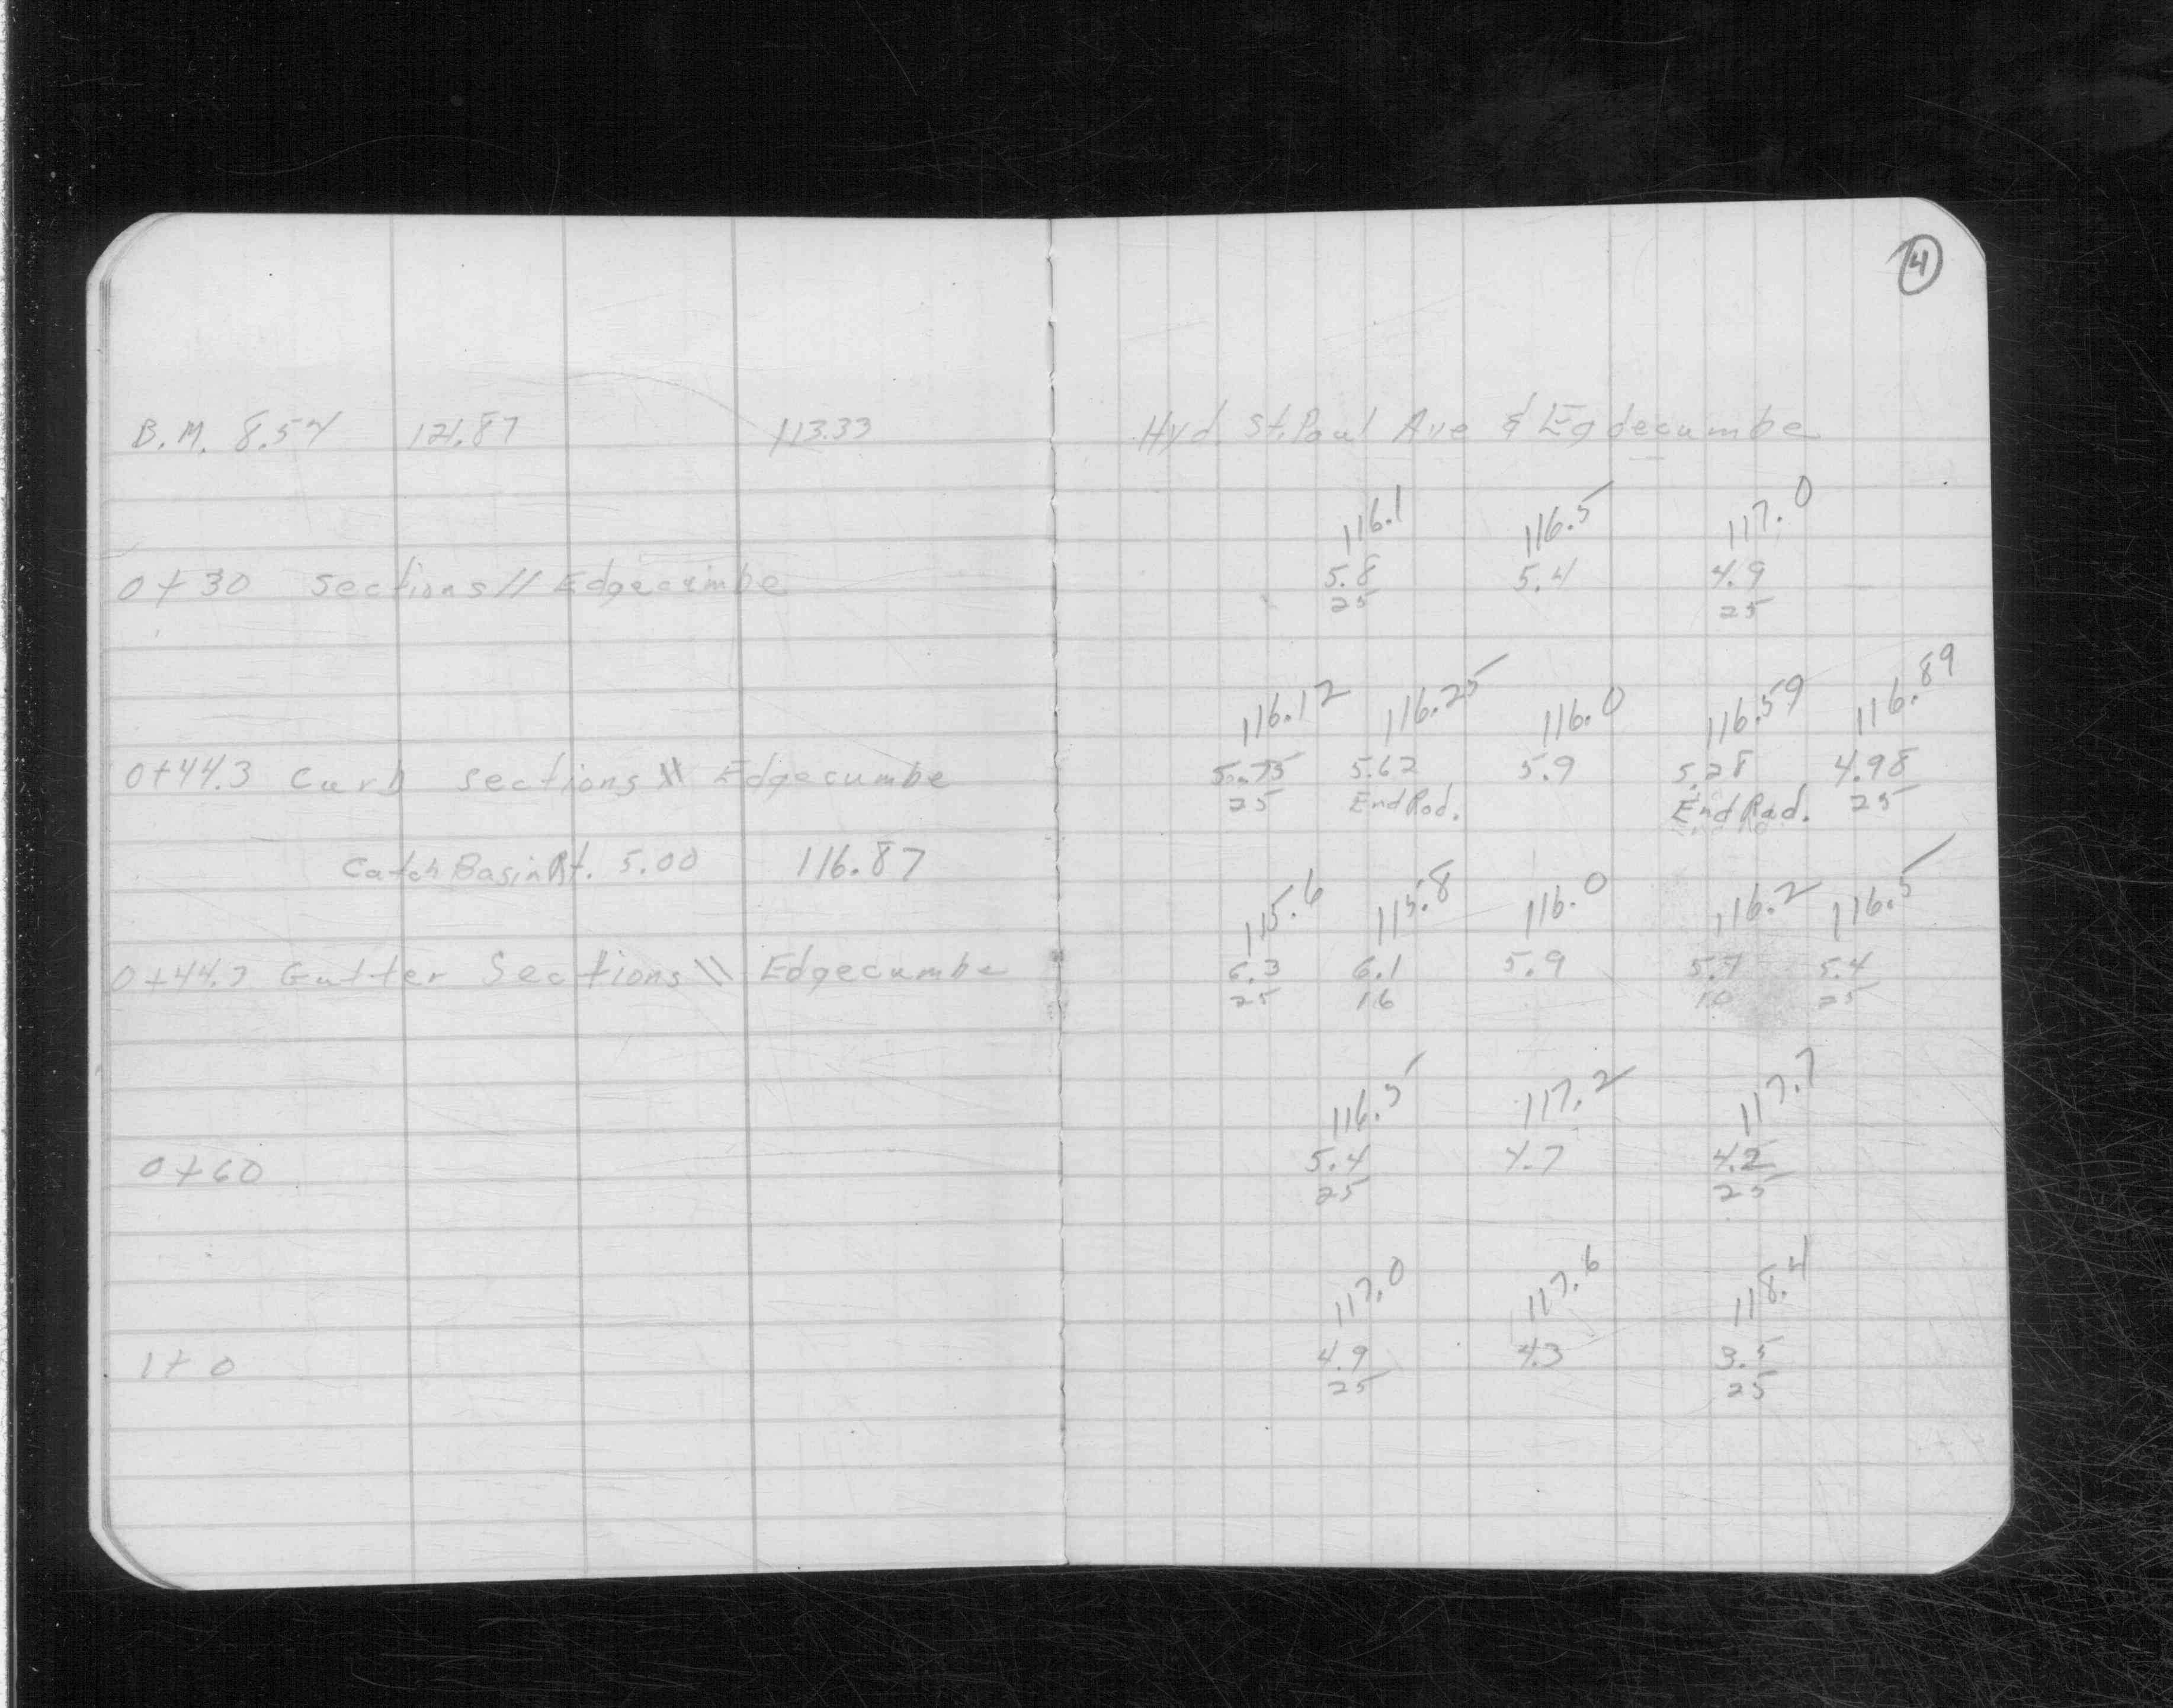 4
B.M. 8.54 121.87 113.33 Hyd. St. Paul Ave & Egdecumbe
116.1 116.5 117.0
0+30 sections // Edgecumbe 5.8 5.4 4.9
25 25
116.12 116.25 116.0 116.59 116.89
0+44.3 Curb sections \\ Edgecumbe 5.75 5.62 5.9 5.28 4.98
25 End Rad. End Rad. 25
Catch Basin Rt. 5.00 116.87
115.6 115.8 116.0 116.2 116.5
0+44.3 Gutter Sections \\ Edgecumbe 6.3 6.1 5.9 5.7 5.4
25 16 10 25
116.5 117.2 117.7
0+60 5.4 4.7 4.2
25 25
117.0 117.6 118.4
1+0 4.9 4.3 3.5
25 25